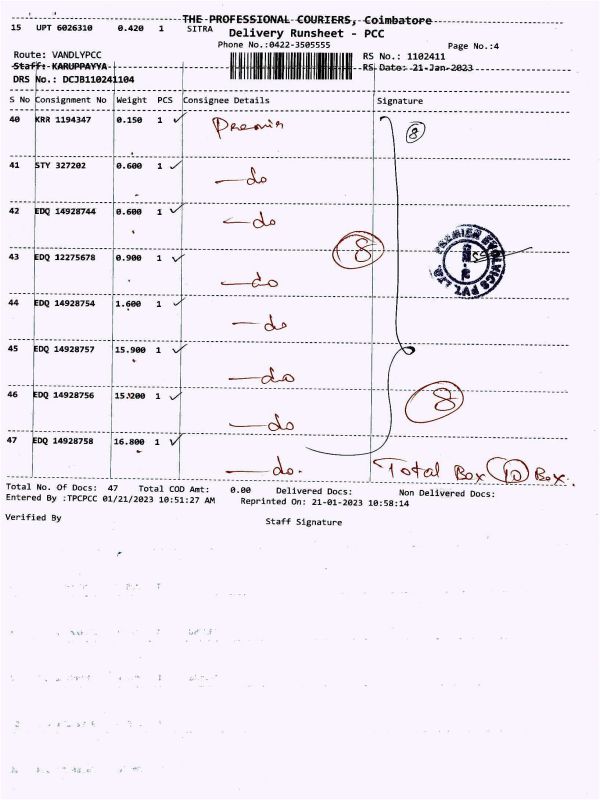 THE PROFESSIONAL COURIERS, Coimbatore
15 UPT 6026310 0.420 1 SITRA
Delivery Runsheet - PCC
Phone No.:0422-3505555
Page No.:4
Route: VANDLYPCC
RS No.: 1102411
Staff: KARUPPAYYA
RS Date: 21-Jan-2023
DRS No.: DCJB110241104
S No Consignment No Weight PCS Consignee Details Signature
40 KRR 1194347 0.150 1 ✓ Premier 8
41 STY 327202 0.600 1 ✓ —do
42 EDQ 14928744 0.600 1 ✓ —do
43 EDQ 12275678 0.900 1 ✓ —do 8
PREMIER EVOLVICS PVT LTD
44 EDQ 14928754 1.600 1 ✓ —do
45 EDQ 14928757 15.900 1 ✓ —do
46 EDQ 14928756 15.200 1 ✓ —do 8
47 EDQ 14928758 16.800 1 ✓ —do. Total Box 10 Box.
Total No. Of Docs: 47 Total COD Amt: 0.00 Delivered Docs: Non Delivered Docs:
Entered By :TPCPCC 01/21/2023 10:51:27 AM Reprinted On: 21-01-2023 10:58:14
Verified By
Staff Signature